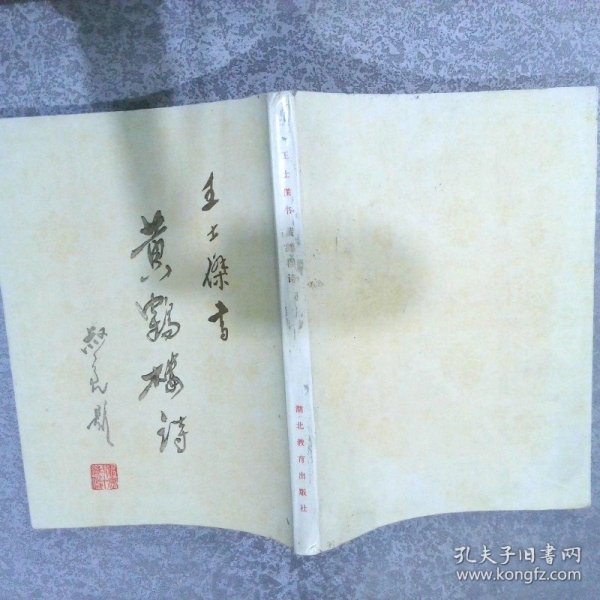 王士傑书
黄鹤楼诗
题
王士杰书黄鹤楼诗
湖北教育出版社
孔夫子旧书网
www.kongfz.com